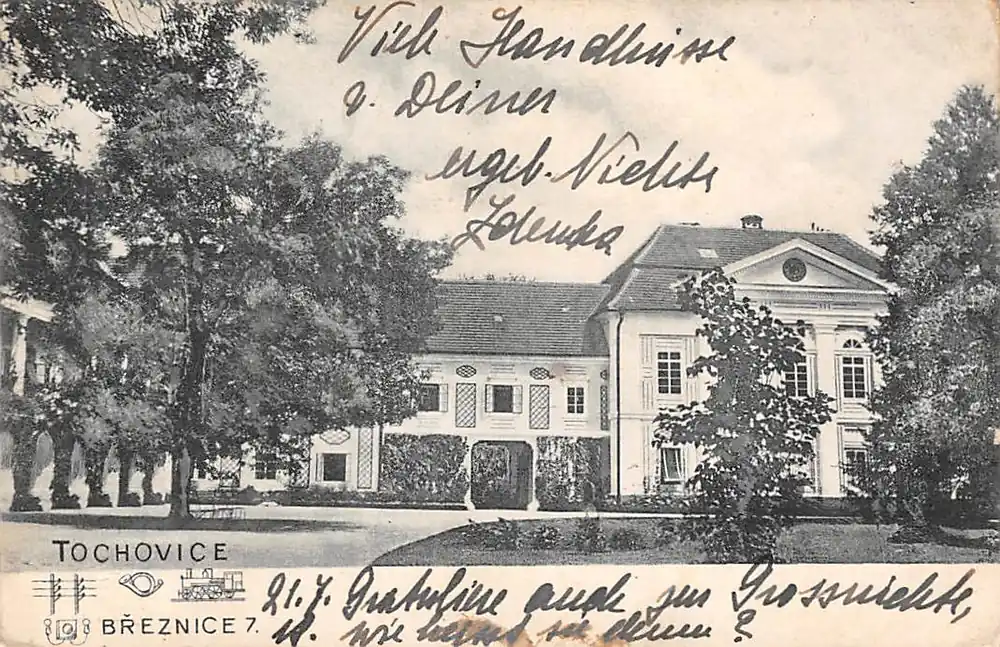 Viele Handküsse
v. Deiner
ergeb. Nichte
Zdenka
TOCHOVICE
BŘEZNICE 7.
21.7. Gratuliere auch zur Grossnichte,
u. wie heisst sie denn?